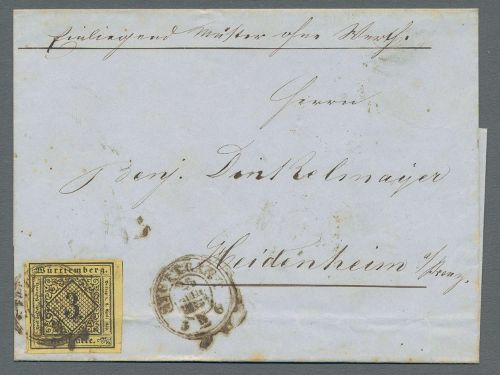 Einliegend Muster ohne Werth.
Herrn
Benj. Dinkelmayer
Heidenheim a/Brenz.
Württemberg.
3
STUTTGART